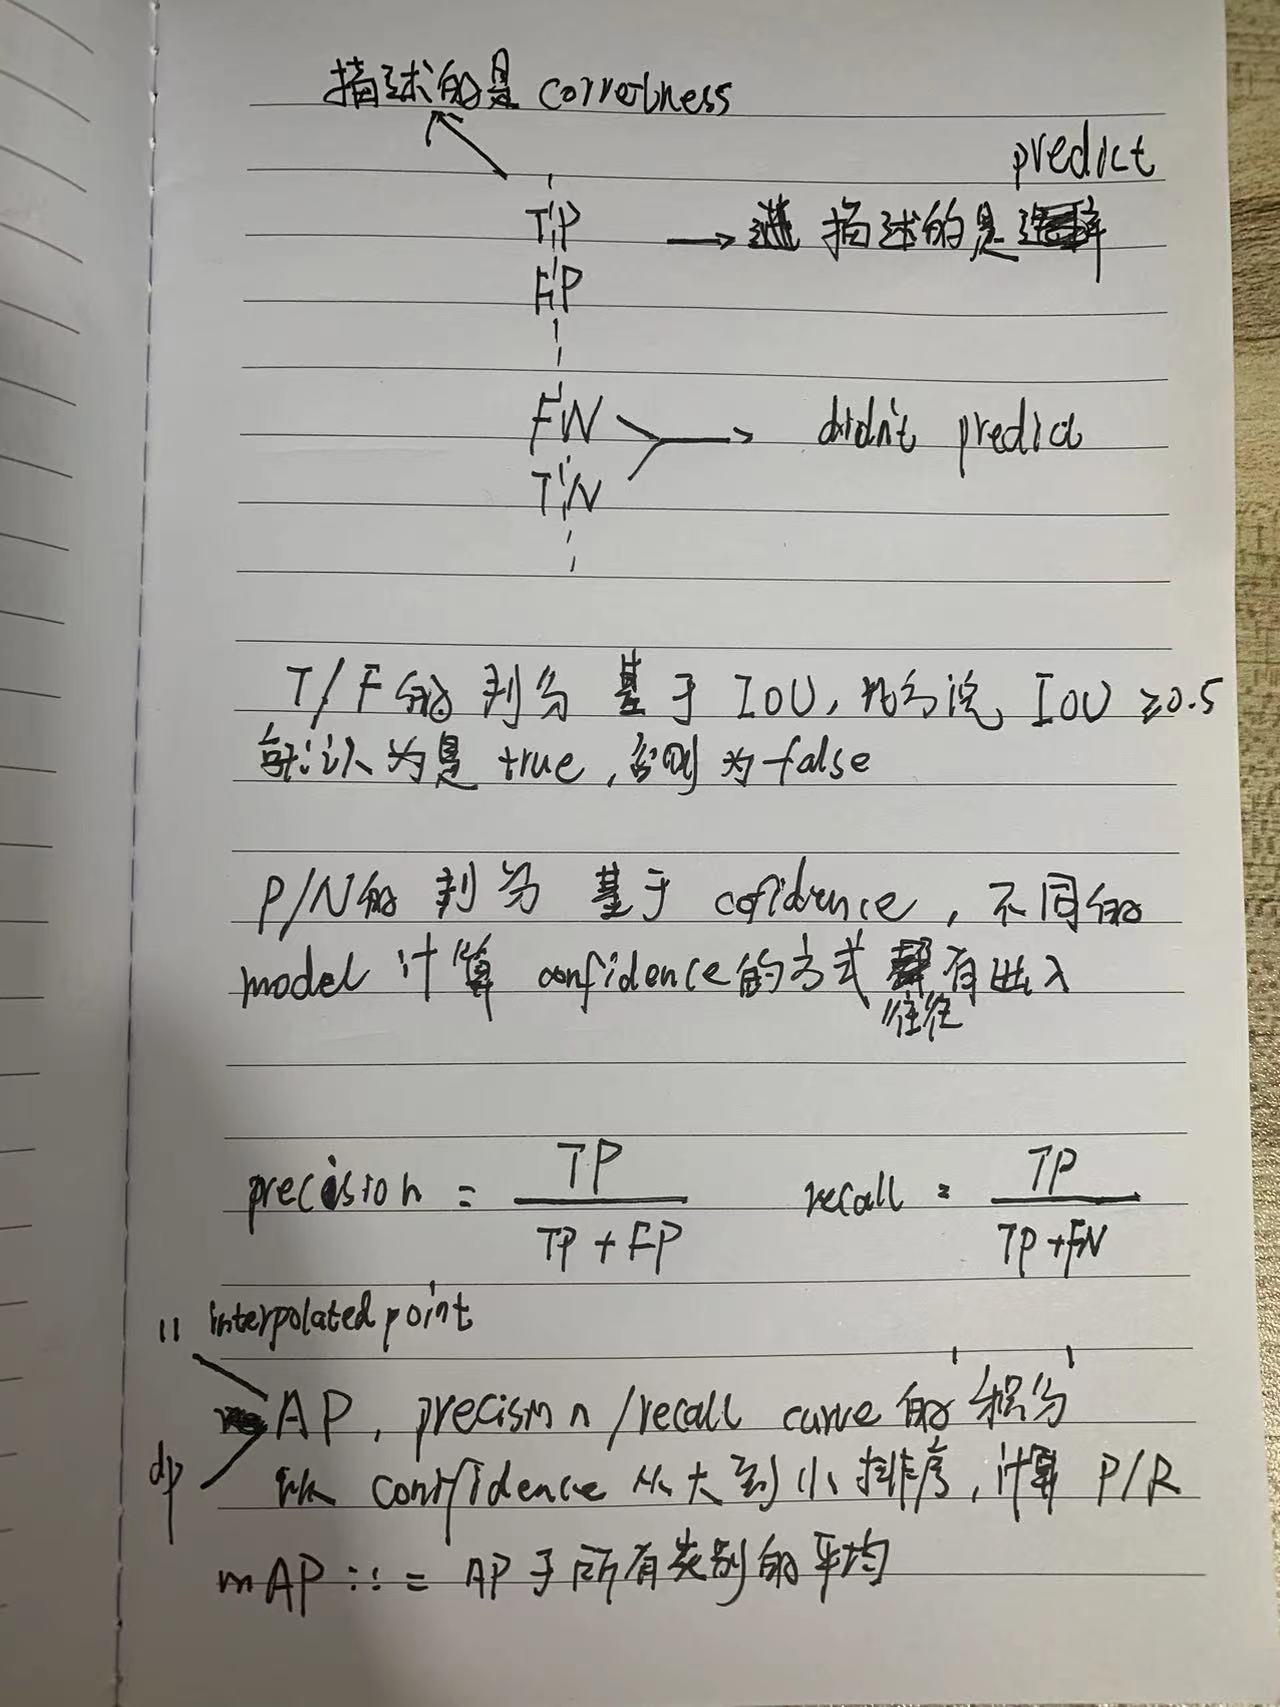 描述的是 correctness
predict
TP → 描述的是
FP
FN → didn't predict
TN
T/F的判分 基于 IOU, 比方说 IOU ≥0.5
就认为是 true, 否则为 false
P/N的 判分 基于 cofidence, 不同的
model 计算 confidence的方式 往往 有出入
precision = TP / TP + FP recall = TP / TP + FN
11 interpolated point
AP, precision /recall curve 的 '积分'
dp
以 confidence 从大到小排序, 计算 P/R
mAP ::= AP于所有类别的平均